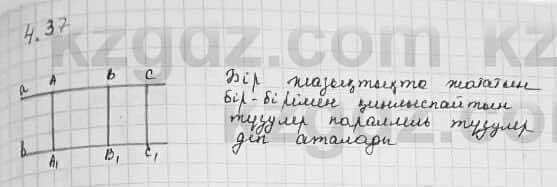 4.37
kzgdz.com kz
a A B C
Бір жазықтықта жататын
бір-бірімен қиылыспайтын
түзулер параллель түзулер
деп аталады
b A₁ B₁ C₁